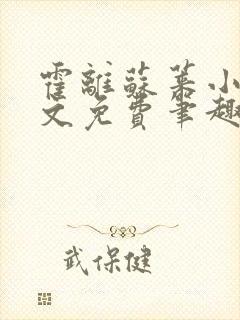 霍離蘇慕小
文免費筆趣
武保健